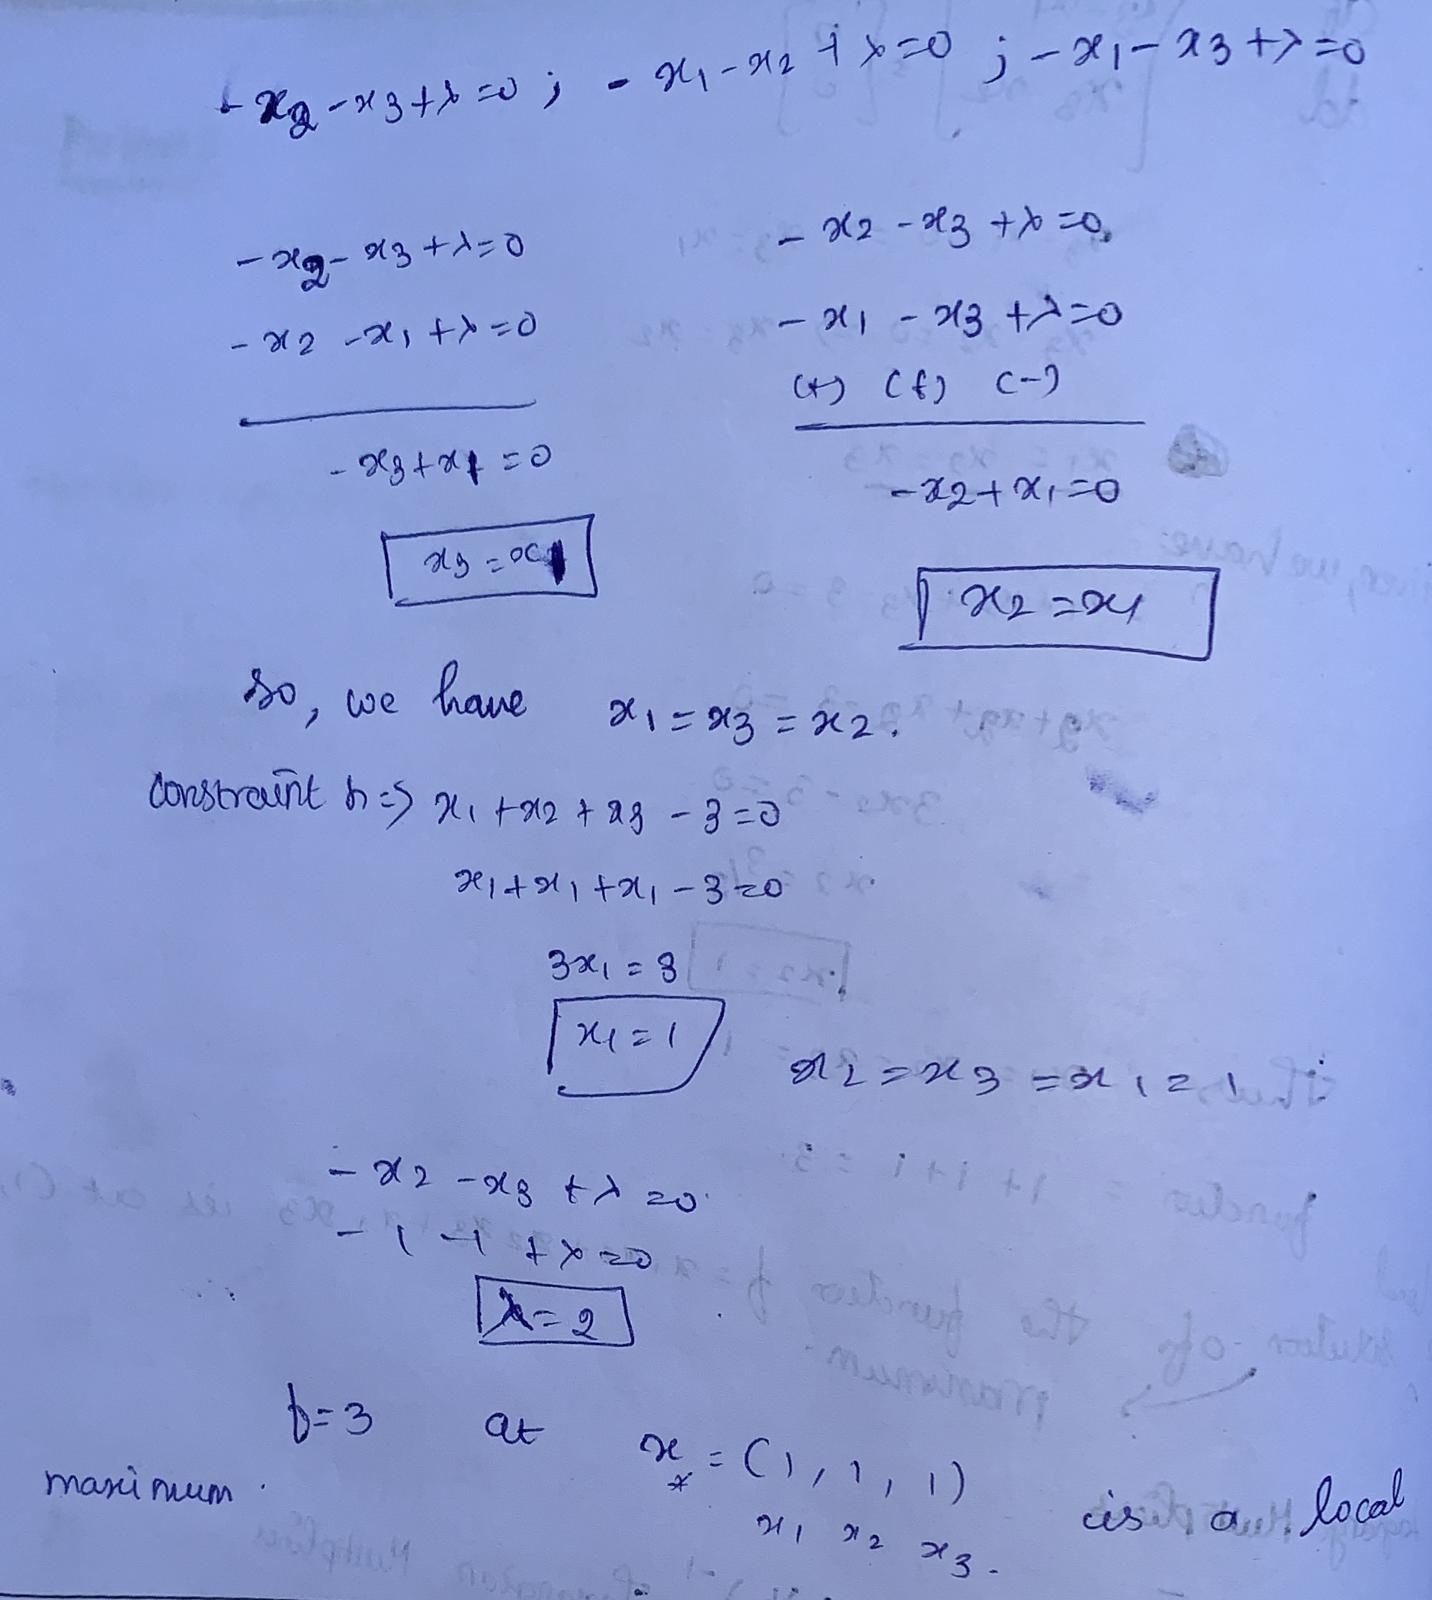 -x2-x3+λ=0 ; -x1-x2+λ=0 ; -x1-x3+λ=0
-x2-x3+λ=0
-x2-x1+λ=0
-x3+x1=0
x3=x1
-x2-x3+λ=0
-x1-x3+λ=0
(+) (+) (-)
-x2+x1=0
x2=x1
So, we have x1=x3=x2.
Constraint h => x1+x2+x3-3=0
x1+x1+x1-3=0
3x1=3
x1=1
x2=x3=x1=1
-x2-x3+λ=0
-1-1+λ=0
λ=2
f=3 at x*=(1,1,1) is a local
x1 x2 x3.
maximum.